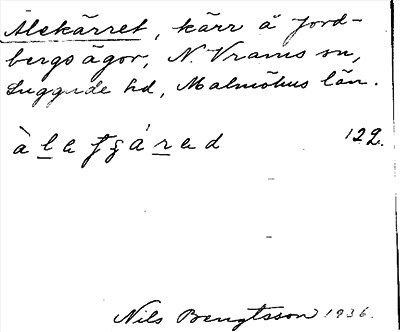 Ålekärret, kärr å Jord-
bergs ägor, N. Vrams sn,
Luggude hd, Malmöhus län.
122.
Nils Bengtsson 1936.